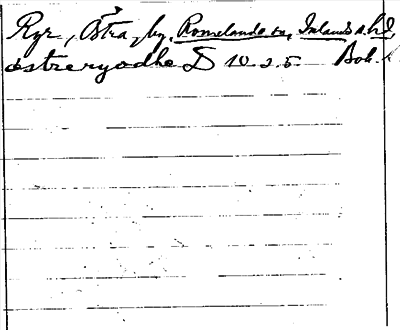 Ryr, Östra, by, Romelanda sn, Inlands s. hd,
østreryodhe D 10. 2. 5. Boh.